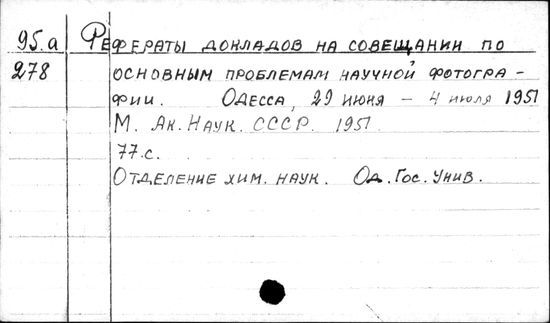 95.а Рефераты докладов на совещании по
278 основным проблемам научной фотогра-
фии. Одесса, 29 июня – 4 июля 1951
М. Ак. Наук. СССР. 1951.
77.с.
Отделение хим. наук. Од. Гос. Унив.